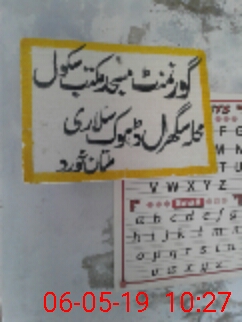 گورنمنٹ مسجد مکتب سکول
محلہ سگھرل ڈھوک سلاری
ملتان خورد
F
M N
T U
V W X Y Z
a b c d e f g
h i j k l m n
o p q r s t n
u v w x y z
06-05-19 10:27